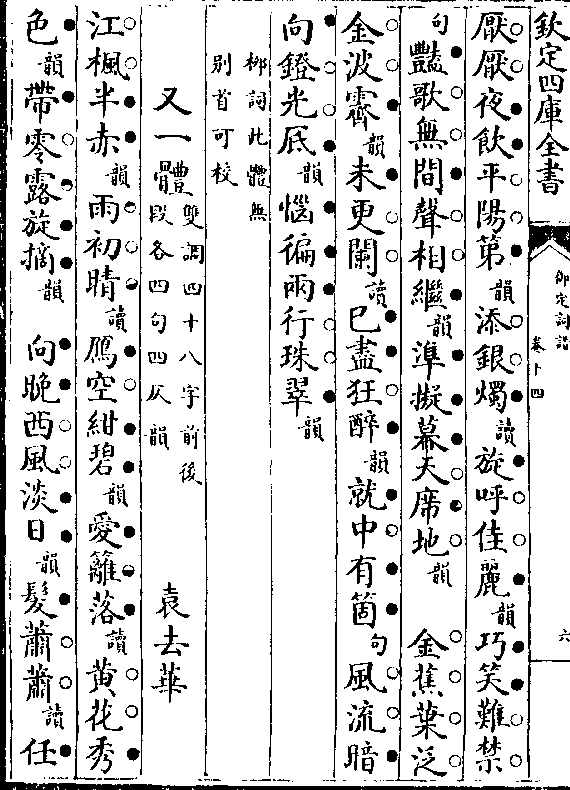 欽定四庫全書
御定詞譜
卷十四
六
厭厭夜飲平陽第韻添銀燭讀旋呼佳麗韻巧笑難禁
句豔歌無間聲相繼韻準擬幕天席地韻　金蕉葉泛
金波霽韻未更闌讀已盡狂醉韻就中有箇句風流暗
向鐙光底韻惱徧兩行珠翠韻
柳詞此體無
別首可校
又一體雙調四十八字前後
段各四句四仄韻　袁去華
江楓半赤韻雨初晴讀鴈空紺碧韻愛籬落讀黃花秀
色韻帶零露旋摘韻　向晚西風淡日韻髮蕭蕭讀任